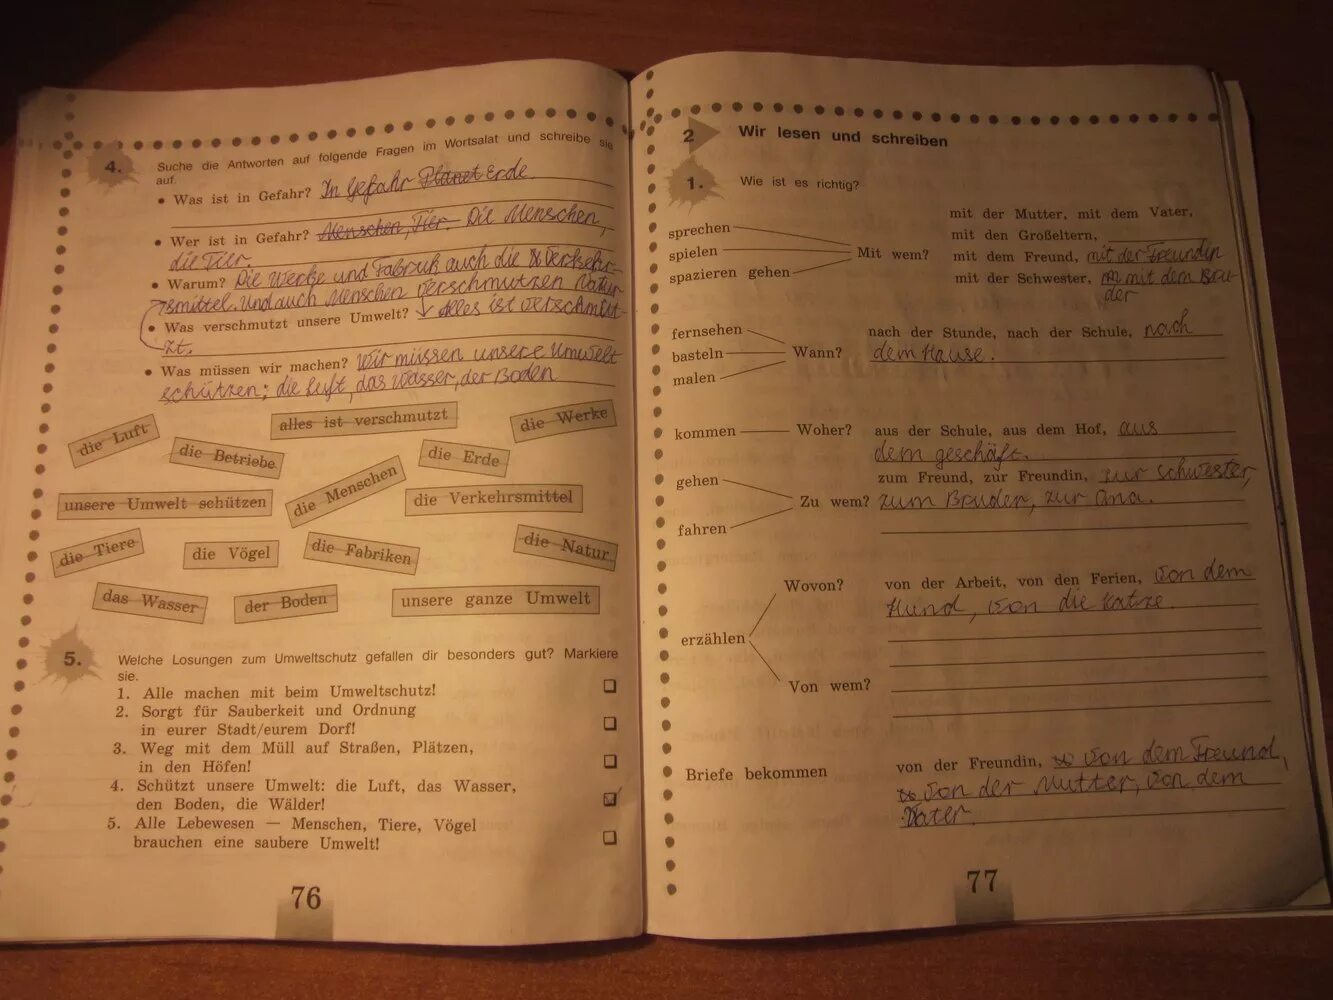 4. Suche die Antworten auf folgende Fragen im Wortsalat und schreibe sie
auf.
• Was ist in Gefahr? In Gefahr Planet Erde.
• Wer ist in Gefahr? Menschen, Tier. Die Menschen,
die Tier.
• Warum? Die Werke und Fabruk auch die Verkehr-
smittel. Und auch Menschen verschmutzen Natur
• Was verschmutzt unsere Umwelt? Alles ist verschmut-
zt.
• Was müssen wir machen? Wir müssen unsere Umwelt
schützen: die Luft, das Wasser, der Boden
die Luft
alles ist verschmutzt
die Werke
die Betriebe
die Erde
unsere Umwelt schützen
die Menschen
die Verkehrsmittel
die Tiere
die Vögel
die Fabriken
die Natur
das Wasser
der Boden
unsere ganze Umwelt
5. Welche Losungen zum Umweltschutz gefallen dir besonders gut? Markiere
sie.
1. Alle machen mit beim Umweltschutz!
2. Sorgt für Sauberkeit und Ordnung
in eurer Stadt/eurem Dorf!
3. Weg mit dem Müll auf Straßen, Plätzen,
in den Höfen!
4. Schützt unsere Umwelt: die Luft, das Wasser,
den Boden, die Wälder!
5. Alle Lebewesen — Menschen, Tiere, Vögel
brauchen eine saubere Umwelt!
76
2 Wir lesen und schreiben
1. Wie ist es richtig?
sprechen
spielen
spazieren gehen
Mit wem?
mit der Mutter, mit dem Vater,
mit den Großeltern,
mit dem Freund, mit der Freundin
mit der Schwester, mit dem Bru-
der
fernsehen
basteln
malen
Wann?
nach der Stunde, nach der Schule, nach
dem Hause.
kommen
Woher?
aus der Schule, aus dem Hof, aus
dem geschäft.
gehen
fahren
Zu wem?
zum Freund, zur Freundin, zur Schwester,
zum Bruder, zur Oma.
erzählen
Wovon?
von der Arbeit, von den Ferien, von dem
Hund, von die Katze.
Von wem?
Briefe bekommen
von der Freundin, von dem Freund,
von der Mutter, von dem
Vater.
77